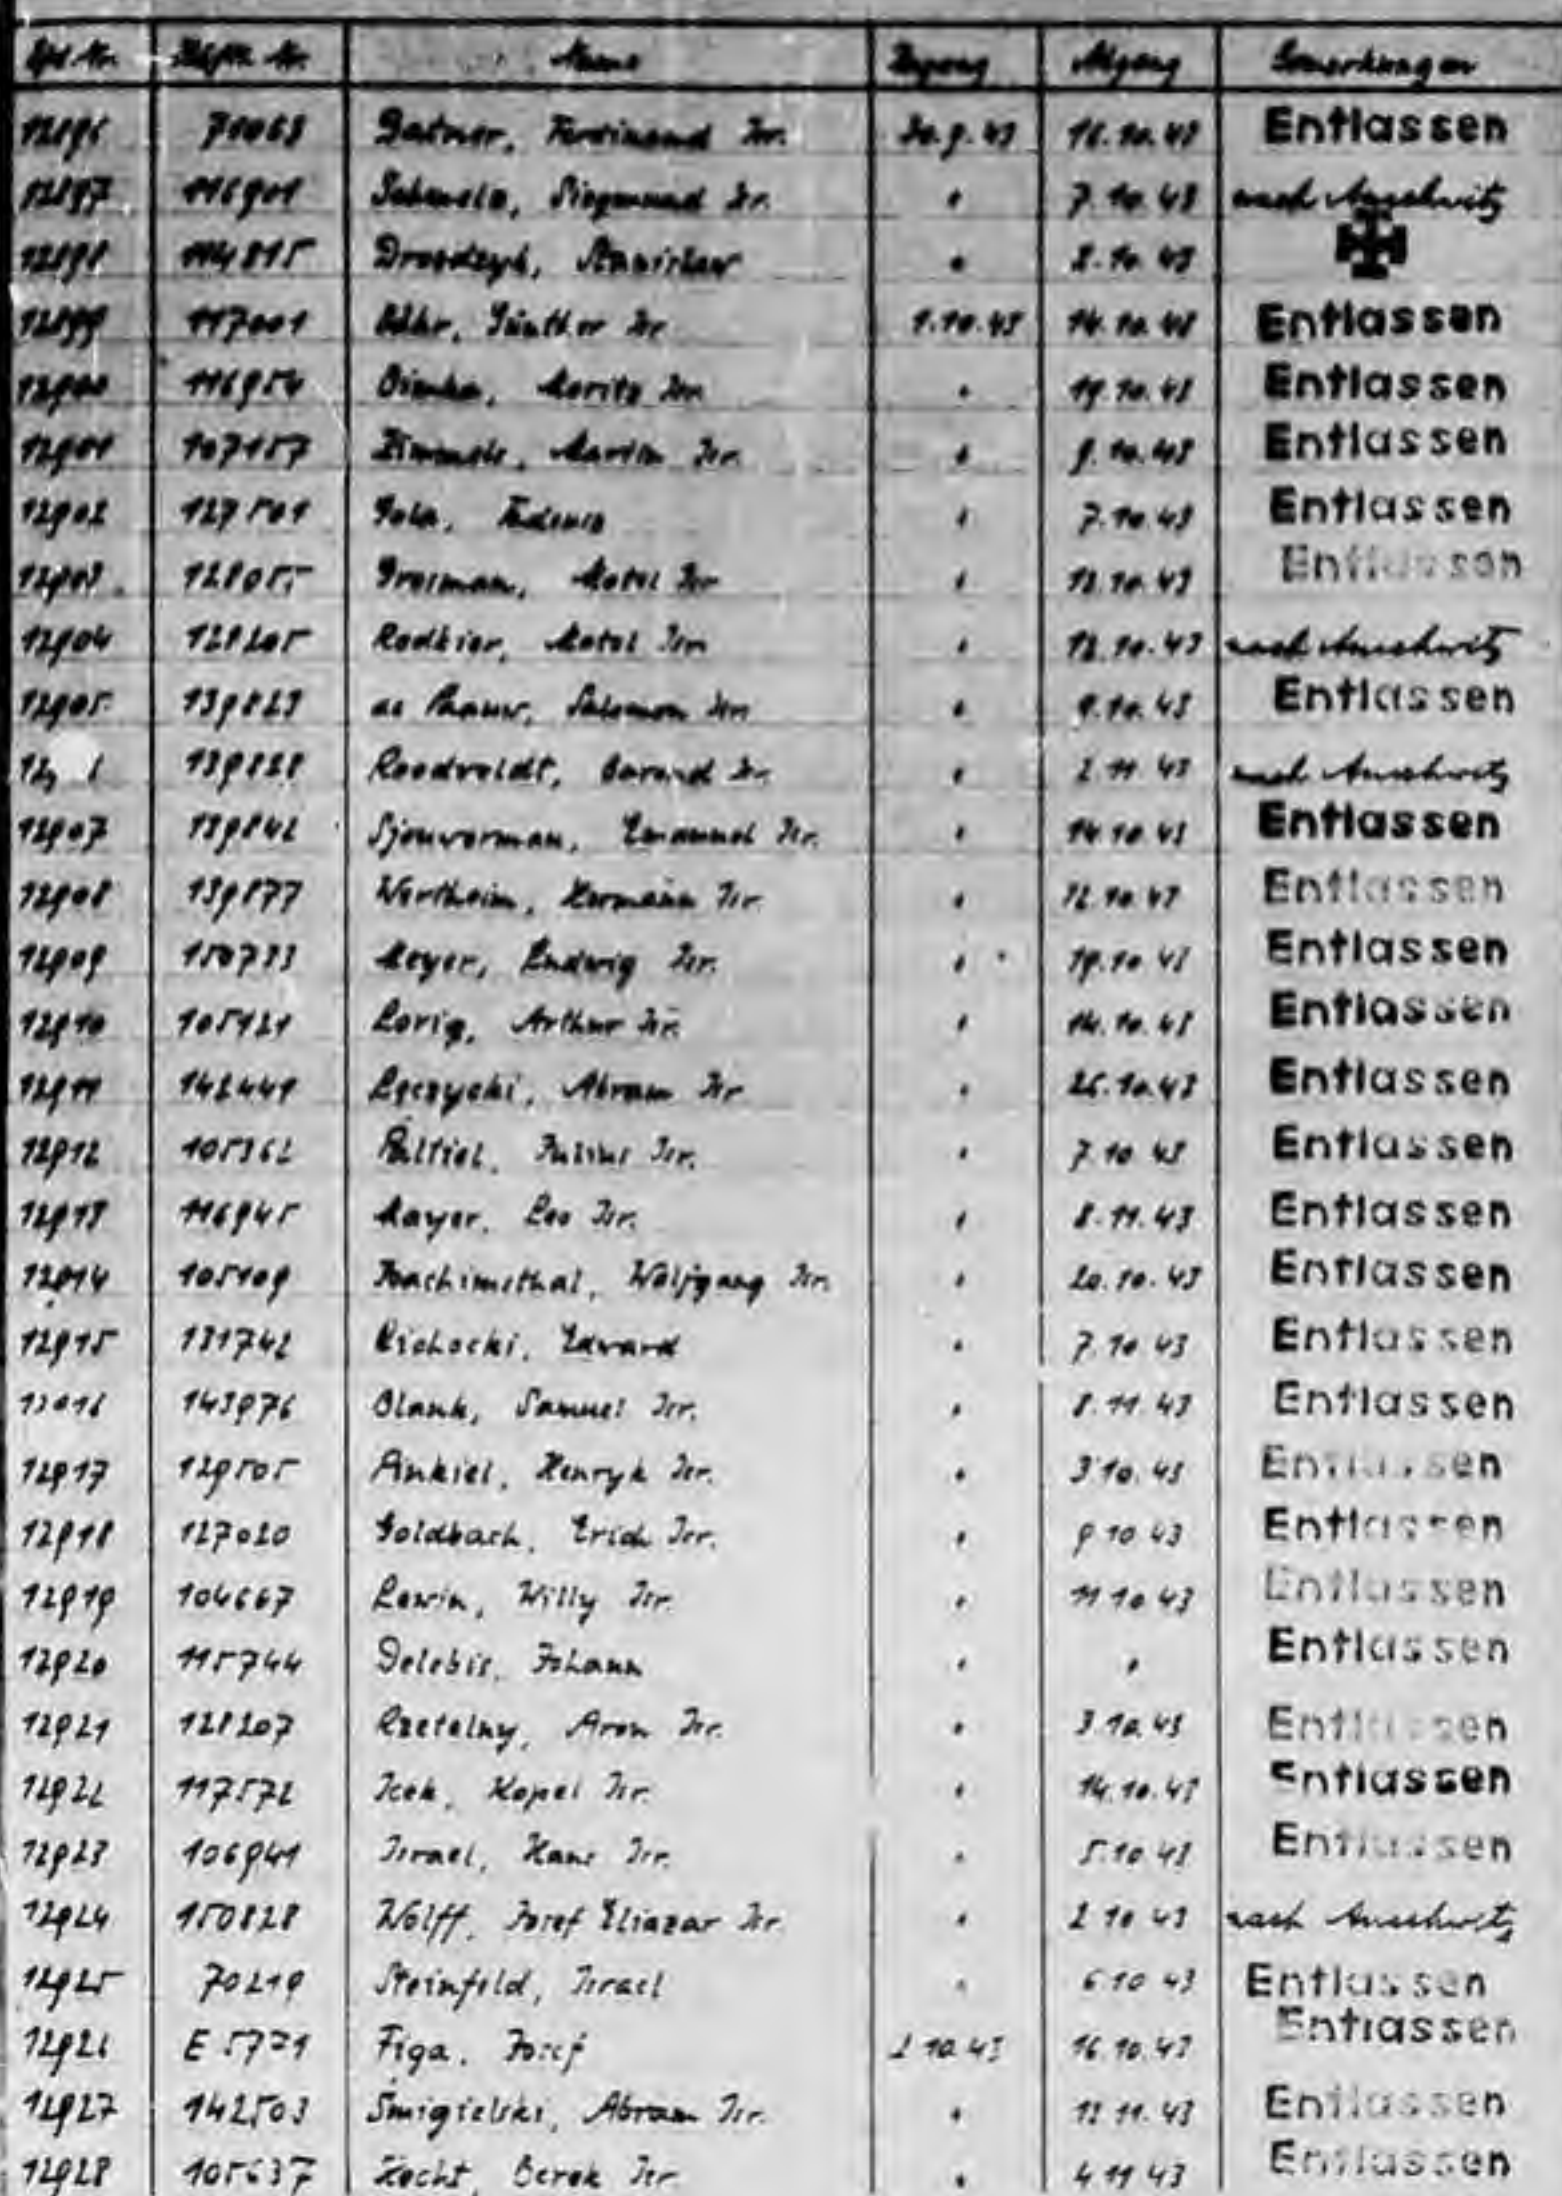 Lfd. Nr. Häftl. Nr. Name Zugang Abgang Bemerkungen
12896 70068 Gatner, Ferdinand Isr. 30.9.43 16.10.43 Entlassen
12897 116901 Siegmund Isr. " 7.10.43 nach Auschwitz
12898 114815 Drozdzyk, Stanislaw " 2.10.43
12899 117001 Bähr, Günther Isr 1.10.43 14.10.43 Entlassen
12900 116954 Moritz Isr. " 19.10.43 Entlassen
12901 107157 Martin Isr. " 9.10.43 Entlassen
12902 127501 Gola, Tadeusz " 7.10.43 Entlassen
12903 Grosman, Motel Isr " 12.10.43 Entlassen
12904 128205 Rodkier, Motel Isr. " 12.10.43 nach Auschwitz
12905 139823 de Paauw, Salomon Isr. " 9.10.43 Entlassen
139828 Roodveldt, Barend Isr. " 2.11.43 nach Auschwitz
12907 139842 Sjouwerman, Emanuel Isr. " 14.10.43 Entlassen
12908 139877 Wertheim, Hermann Isr. " 12.10.43 Entlassen
12909 150733 Meyer, Ludwig Isr. " 19.10.43 Entlassen
12910 105121 Lorig, Arthur Isr. " 14.10.43 Entlassen
12911 142441 Łęczycki, Abram Isr " 26.10.43 Entlassen
12912 105362 Paltiel, Julius Isr. " 7.10.43 Entlassen
12913 116945 Mayer, Leo Isr. " 8.11.43 Entlassen
12914 105109 Joachimsthal, Wolfgang Isr. " 20.10.43 Entlassen
12915 131742 Cichocki, Edward " 7.10.43 Entlassen
12916 143976 Blank, Samuel Isr. " 8.11.43 Entlassen
12917 129505 Pinkiel, Henryk Isr. " 3.10.43 Entlassen
12918 127020 Goldbach, Erich Isr. " 9.10.43 Entlassen
12919 104667 Lewin, Willy Isr. " 11.10.43 Entlassen
12920 115744 Delebis, Johann " " Entlassen
12921 128207 Rzetelny, Aron Isr. " 3.10.43 Entlassen
12922 117572 Icek, Kopel Isr. " 14.10.43 Entlassen
12923 106941 Israel, Hans Isr. " 5.10.43 Entlassen
12924 150828 Wolff, Josef Eliazar Isr. " 2.10.43 nach Auschwitz
12925 70219 Steinfeld, Israel " 6.10.43 Entlassen
12926 E 5771 Figa, Josef 2.10.43 16.10.43 Entlassen
12927 142503 Smigielski, Abram Isr. " 12.11.43 Entlassen
12928 105637 Hecht, Berek Isr. " 4.11.43 Entlassen